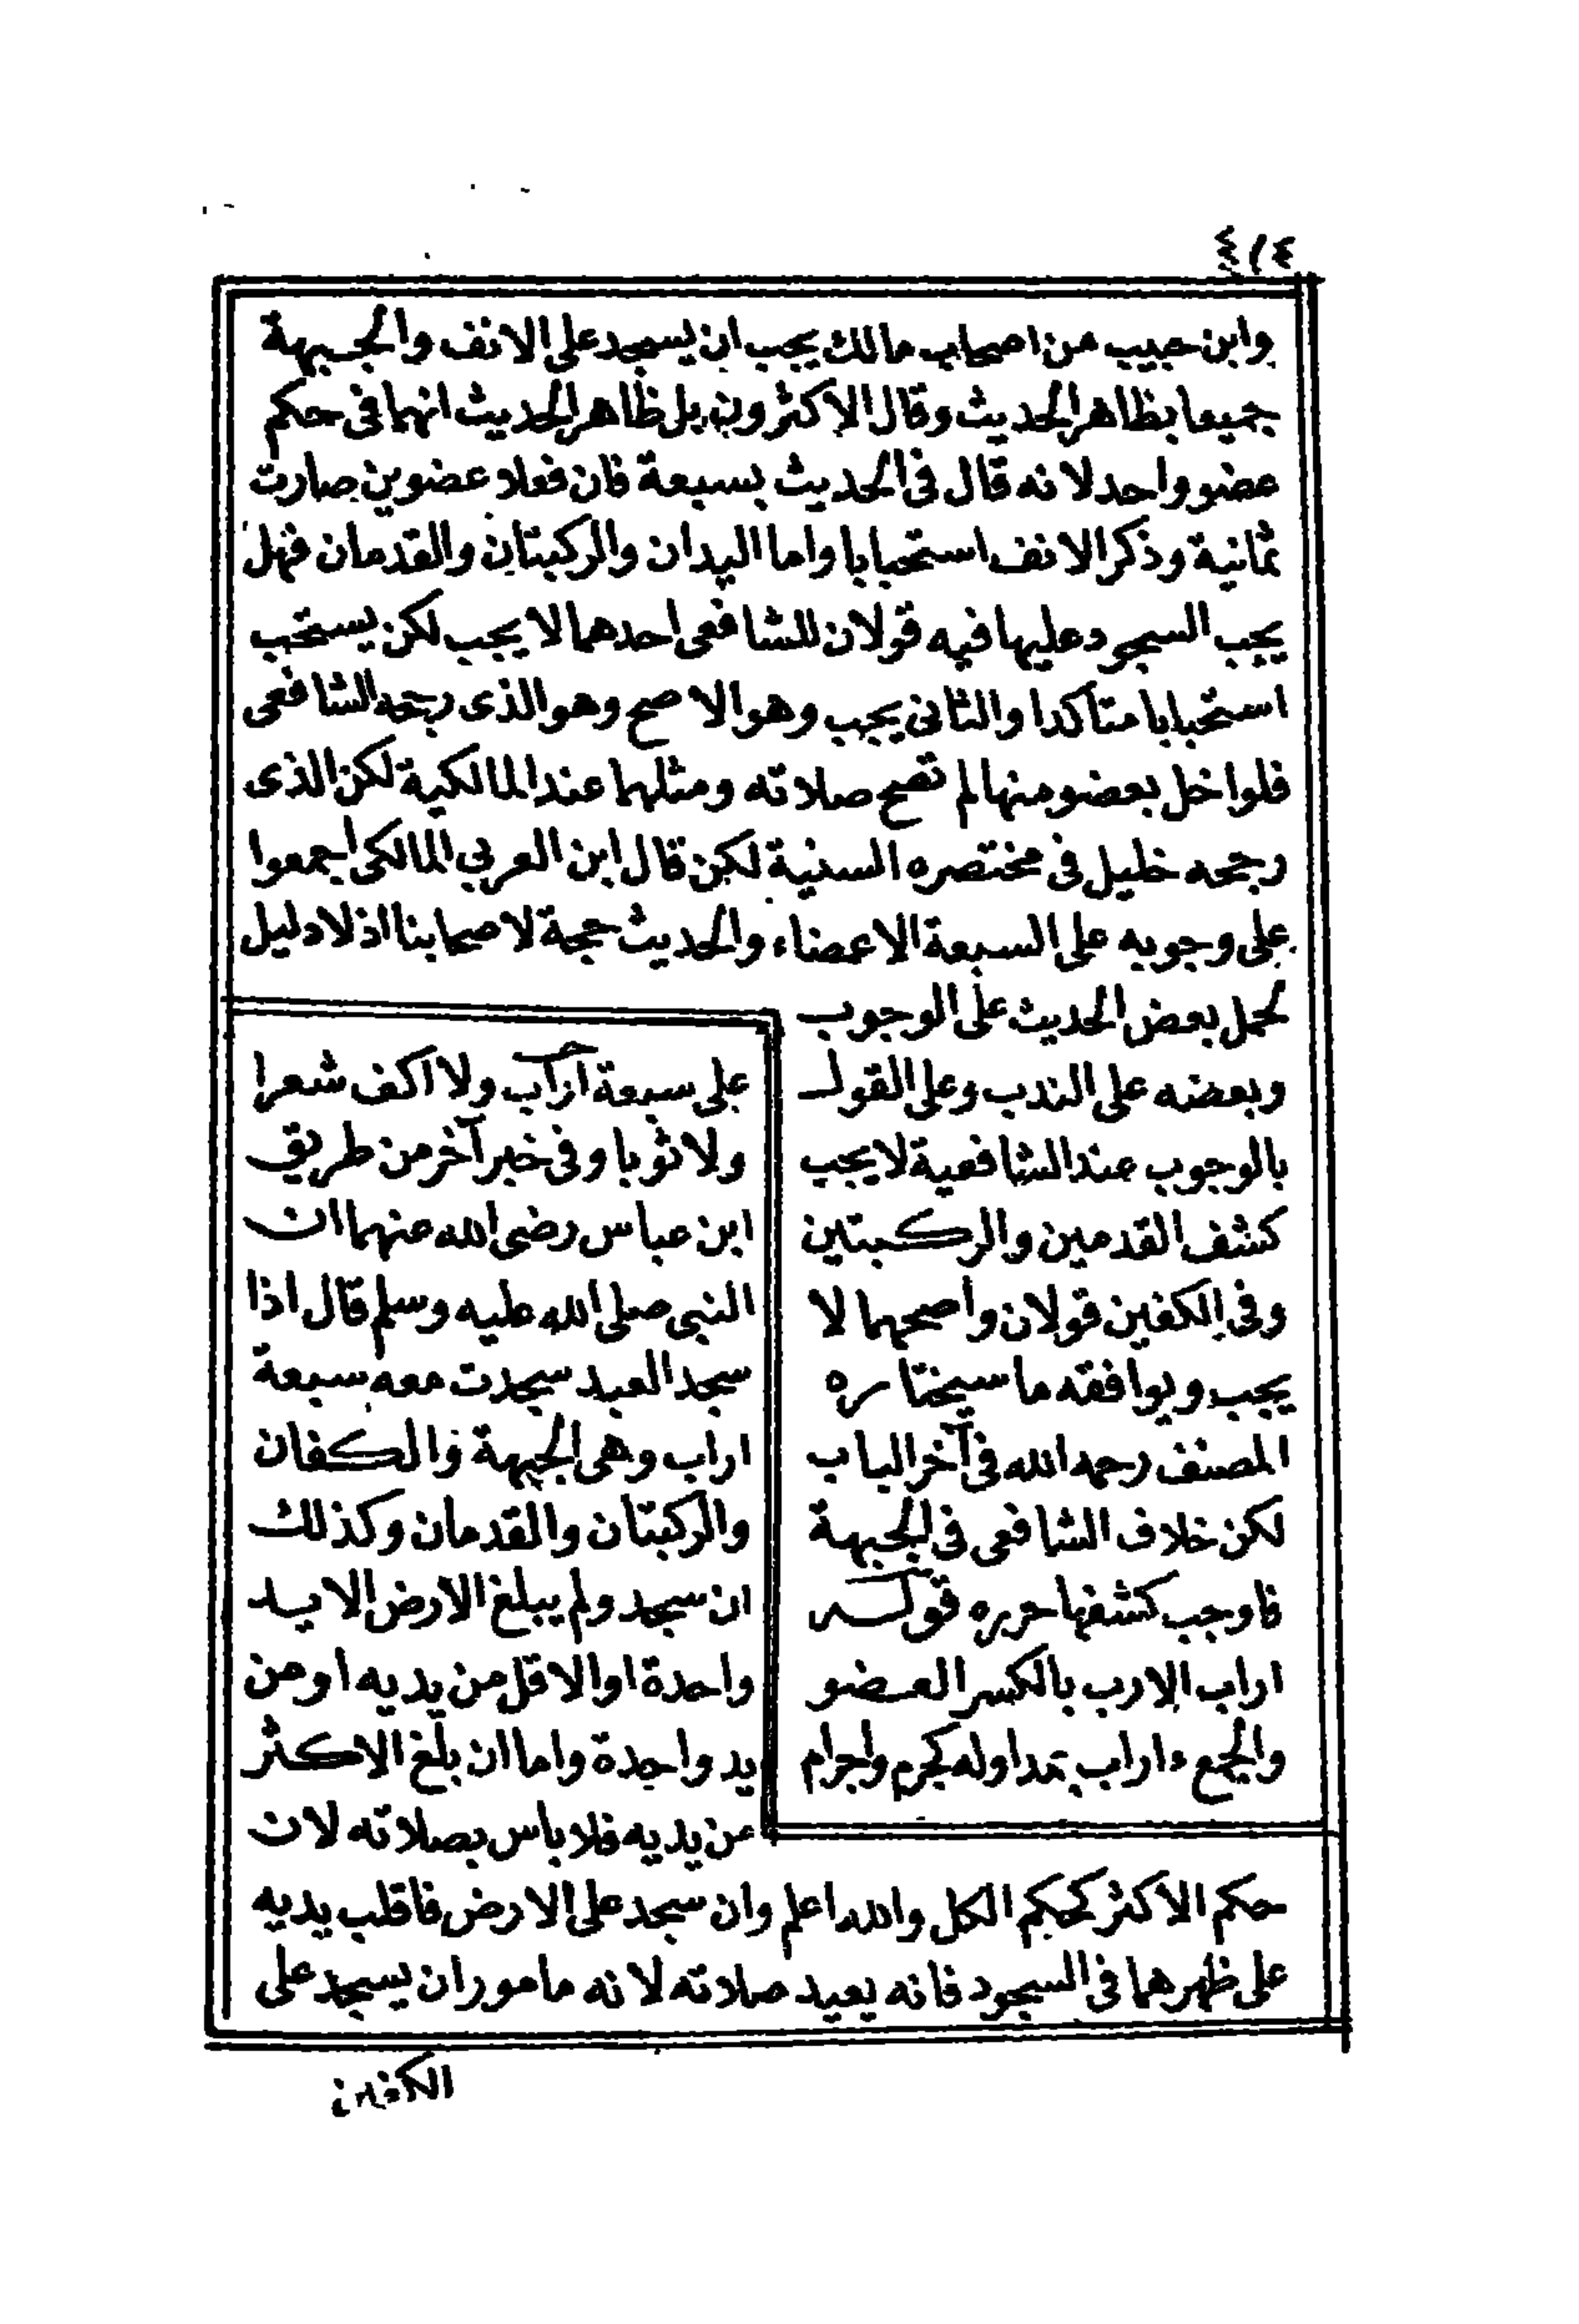 ٤١٤
وابن حبيب من اصحاب مالك يجب ان يسجد على الانف والجبهة
جميعا بظاهر الحديث وقال الاكثرون بل ظاهر الحديث انهما فى حكم
عضو واحد لانه قال فى الحديث بسبعة فان فعلا عضوين صارت
ثمانية وذكر الانف استحبابا واما اليدان والركبتان والقدمان فهل
يجب السجود عليها فيه قولان للشافعى احدهما لا يجب لكن يستحب
استحبابا متأكدا والثانى يجب وهو الاصح وهو الذى رجحه الشافعى
فلو اخل بعضو منها لم تصح صلاته ومثلهما عند المالكية لكن الذى
رجحه خليل فى مختصره السنية لكن قال ابن العربي المالكى اجمعوا
على وجوبه على السبعة الاعضاء والحديث حجة لاصحابنا اذ لا دليل
لحمل بعض الحديث على الوجوب
وبعضه على الندب وعلى القول
بالوجوب عند الشافعية لا يجب
كشف القدمين والركبتين
وفى الكفين قولان واصحهما لا
يجب ويوافقه ما سيختاره
المصنف رحمه الله فى آخر الباب
لكن خلاف الشافعى فى الجبهة
فاوجب كشفها حرره قوله
اراب الارب بالكسر العضو
والجمع ءاراب بمد اوله كجرم واجرام
على سبعة اراب ولا اكف شعرا
ولا ثوبا وفى خبر آخر من طريق
ابن عباس رضى الله عنهما ان
النبى صلى الله عليه وسلم قال اذا
سجد العبد سجدت معه سبعة
اراب وهى الجبهة والكفان
والركبتان والقدمان وكذلك
ان سجد ولم يبلغ الارض الا يد
واحدة او الاقل من يديه او من
يد واحدة واما ان بلغ الاكثر
من يديه فلا باس بصلاته لان
حكم الاكثر كحكم الكل والله اعلم وان سجد على الارض فاقلب يديه
على ظهرهما فى السجود فانه يعيد صلاته لانه مامور ان يسجد على
الكفين